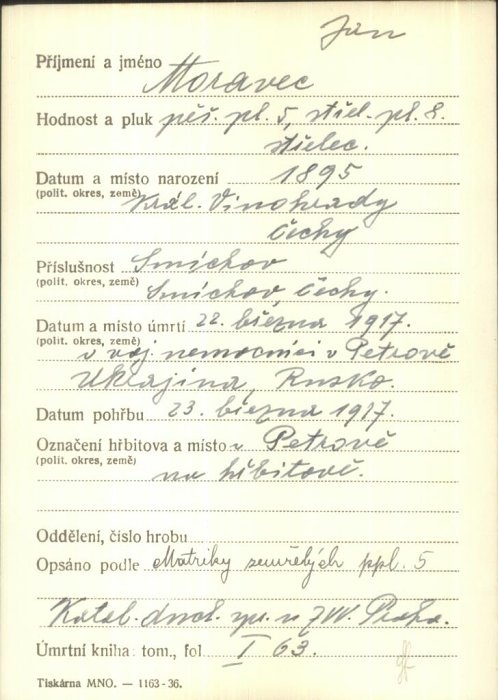 Jan
Příjmení a jméno Moravec
Hodnost a pluk pěš. pl. 5, střel. pl. 8.
střelec.
Datum a místo narození 1895
(polit. okres, země) Král. Vinohrady
Čechy
Příslušnost Smíchov
(polit. okres, země) Smíchov Čechy.
Datum a místo úmrtí 22. března 1917.
(polit. okres, země) v voj. nemocnici v Petrově
Ukrajina, Rusko.
Datum pohřbu 23. března 1917.
Označení hřbitova a místo v Petrově
(polit. okres, země) na hřbitově.
Oddělení, číslo hrobu
Opsáno podle Matriky zemřelých ppl. 5
Katol. duch. spr. u ZVV. Praha.
Úmrtní kniha: tom., fol I 63.
Tiskárna MNO. — 1163-36.